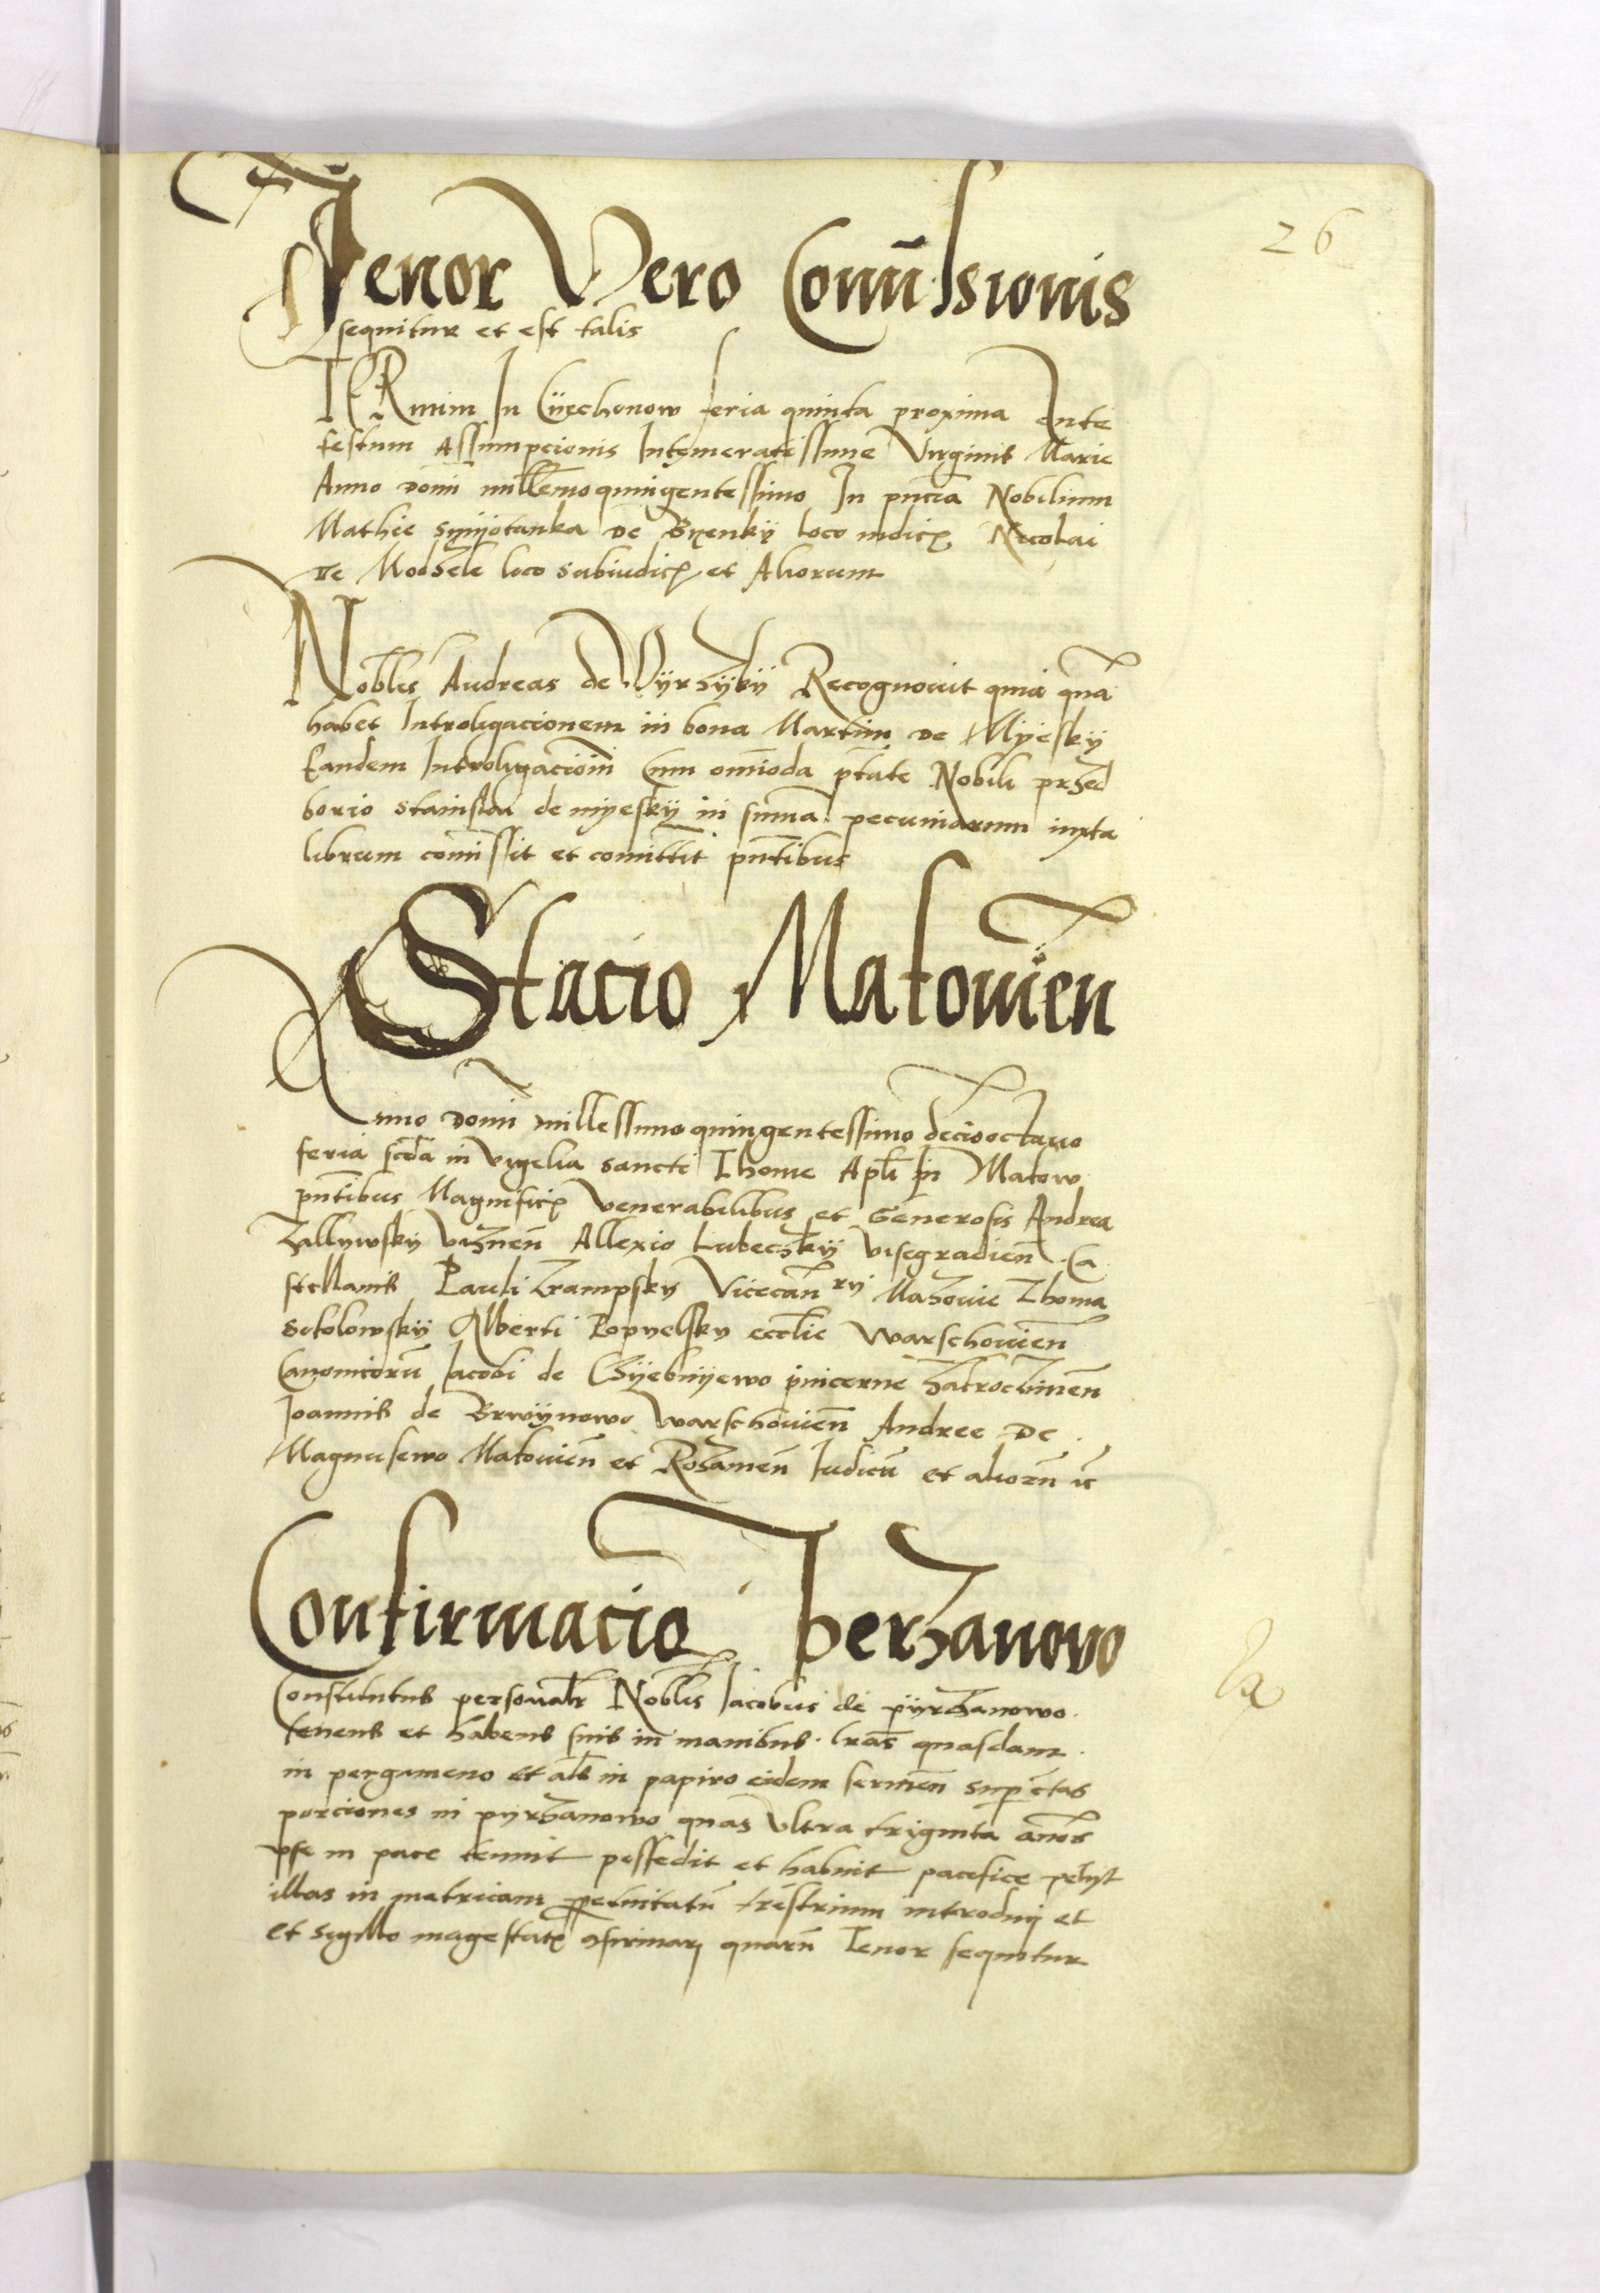 26
Tenor Vero Com̄issionis
sequitur et est talis
TERmini In Cÿechonow feria quinta proxima Ante
festum Assumpcionis Intemeratissime Virginis Marie
Anno Domī mill̄emoquingentessimo In pn̄cia Nobilium
Mathie de Bÿenkÿ loco iudicꝭ Nicolai
De Modsele loco subiudicꝭ et Aliorum
Nobl̄is Andreas de Vÿrzÿkÿ Recognouit quia qn̄a
habet Introligacionem in bona Martini De Mÿeskÿ
Eandem Introligacionē Cum om̄ioda pt̄ate Nobili przed
borio Stanislai de mÿeskÿ in sum̄a pecuniarum iuxta
librum com̄issit et comittit pn̄tibus
Stacio Makouien̄
Anno Domī millessimoquingentessimo decīooctauo
feria scd̄a in vigelia sancti Thome Apl̄i in Makow
pn̄tibus Magnificꝭ venerabilibus et Generosis Andrea
Zallywskÿ viznen̄ Allexio Lubeczskÿ visegradien̄ Ca
stellanis Pauli Zrampsky Vicecan̄rÿ Mazouie Thoma
Sokolowskÿ Alberti Popyelsky eccl̄ie Warschouien̄
Canonicorū Iacobi de Chÿebnÿewo pincerne Zakroczimen̄
Ioannis de Brwÿnowo Warschouien̄ Andree De
Magnusewo Makouien̄ et Rozanen̄ Iudicū et aliorū ꝛc̄
Confirmacio Pÿerzanowo
Constitutus personalr̄ Nobl̄is Iacobus de pÿrzanowo
tenens et habens suis in manibus lr̄as quasdam
in pergameno et al̄s in papiro eidem seruien̄ sup certas
porciones in pyrzanowo quas Vltra triginta annos
ipse in pace tenuit possedit et habuit pacefice petyt
illas in metricam ꝑpetuitatū tr̄estrium introduci et
et sigillo magestatꝭ ꝯfirmarj quarū Tenor sequitur